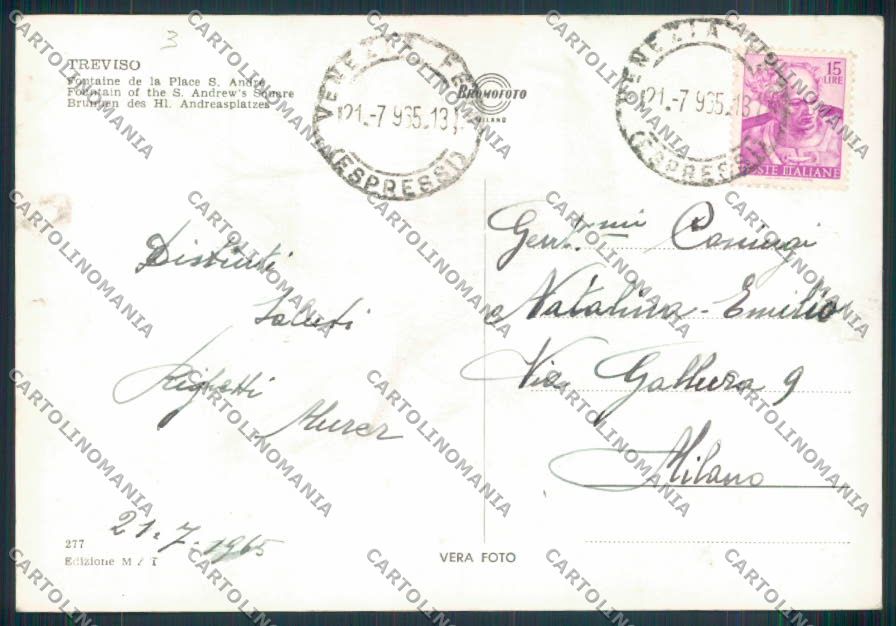 TREVISO
Fontaine de la Place S. André
Fountain of the S. Andrew's Square
Brunnen des Hl. Andreasplatzes
BROMOFOTO
MILANO
VENEZIA
21.-7 965.13
(ESPRESSI)
VENEZIA
21.-7 965.13
(ESPRESSI)
15
LIRE
POSTE ITALIANE
Distinti
Saluti
Righetti
21.7.1965
Gent.mi
Natalina - Emilio
Via Gallura 9
Milano
277
Edizione M A T
VERA FOTO
CARTOLINOMANIA